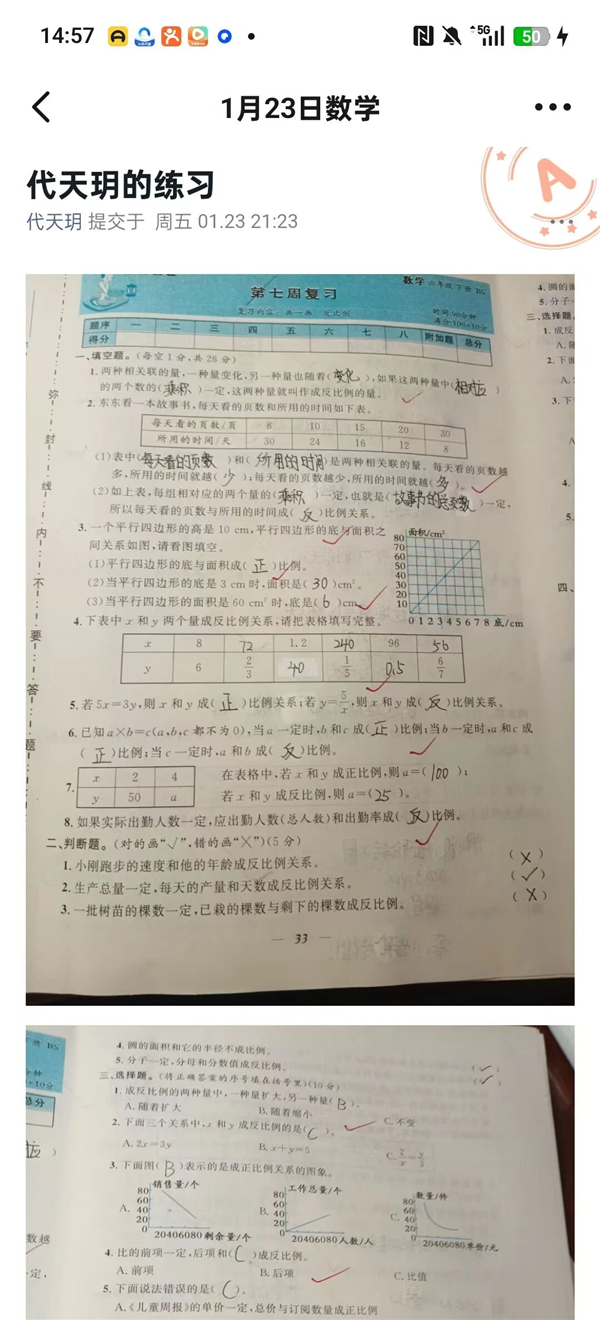 14:57
5G
50
1月23日数学
A
代天玥的练习
代天玥 提交于 周五 01.23 21:23
数学 六年级 下册 BS
第七周复习
时间:90分钟
满分:100+10分
题序 一 二 三 四 五 六 七 八 附加题 总分
得分
一、填空题。(每空1分,共26分)
1. 两种相关联的量,一种量变化,另一种量也随着(变化),如果这两种量中(相对应)
的两个数的(乘积)一定,这两种量就叫作成反比例的量。
2. 东东看一本故事书,每天看的页数和所用的时间如下表。
每天看的页数/页 8 10 15 20 30
所用的时间/天 30 24 16 12 8
(1)表中(每天看的页数)和(所用的时间)是两种相关联的量。每天看的页数越
多,所用的时间就越(少);每天看的页数越少,所用的时间就越(多)。
(2)如上表,每组相对应的两个量的(乘积)一定,也就是(故事书的总页数)一定,
所以每天看的页数与所用的时间成(反)比例关系。
3. 一个平行四边形的高是10 cm,平行四边形的底与面积之
间关系如图,请看图填空。
(1)平行四边形的底与面积成(正)比例。
(2)当平行四边形的底是3 cm时,面积是(30)cm²。
(3)当平行四边形的面积是60 cm²时,底是(6)cm。
面积/cm²
80
70
60
50
40
30
20
10
0 1 2 3 4 5 6 7 8 底/cm
4. 下表中x和y两个量成反比例关系,请把表格填写完整。
x 8 72 1.2 240 96 56
y 6 2/3 40 1/5 0.5 6/7
5. 若5x=3y,则x和y成(正)比例关系;若y=5/x,则x和y成(反)比例关系。
6. 已知a×b=c(a,b,c都不为0),当a一定时,b和c成(正)比例;当b一定时,a和c成
(正)比例;当c一定时,a和b成(反)比例。
7.
x 2 4
y 50 a
在表格中,若x和y成正比例,则a=(100);
若x和y成反比例,则a=(25)。
8. 如果实际出勤人数一定,应出勤人数(总人数)和出勤率成(反)比例。
二、判断题。(对的画“√”,错的画“×”)(5分)
1. 小刚跑步的速度和他的年龄成反比例关系。 (×)
2. 生产总量一定,每天的产量和天数成反比例关系。 (√)
3. 一批树苗的棵数一定,已栽的棵数与剩下的棵数成反比例。 (×)
— 33 —
弥 封 线 内 不 要 答 题
4. 圆的面
5. 分子一
三、选择题。
1. 成反
2. 下面
3. 下
4.
5.
四、
4. 圆的面积和它的半径不成比例。 (√)
5. 分子一定,分母和分数值成反比例。 (√)
三、选择题。(将正确答案的序号填在括号里)(10分)
1. 成反比例的两种量中,一种量扩大,另一种量(B)。
A. 随着扩大 B. 随着缩小 C. 不变
2. 下面三个关系中,x和y成反比例的是(C)。
A. 2x=3y B. x+y=5
3. 下面图(B)表示的是成正比例关系的图象。
A. 销售量/个 80 60 40 20 0 20406080 剩余量/个
B. 工作总量/个 80 60 40 20 0 20406080 人数/人
C. 数量/件 80 60 40 20 0 20406080 单价/元
4. 比的前项一定,后项和(C)成反比例。
A. 前项 B. 后项 C. 比值
5. 下面说法错误的是(C)。
A.《儿童周报》的单价一定,总价与订阅数量成正比例